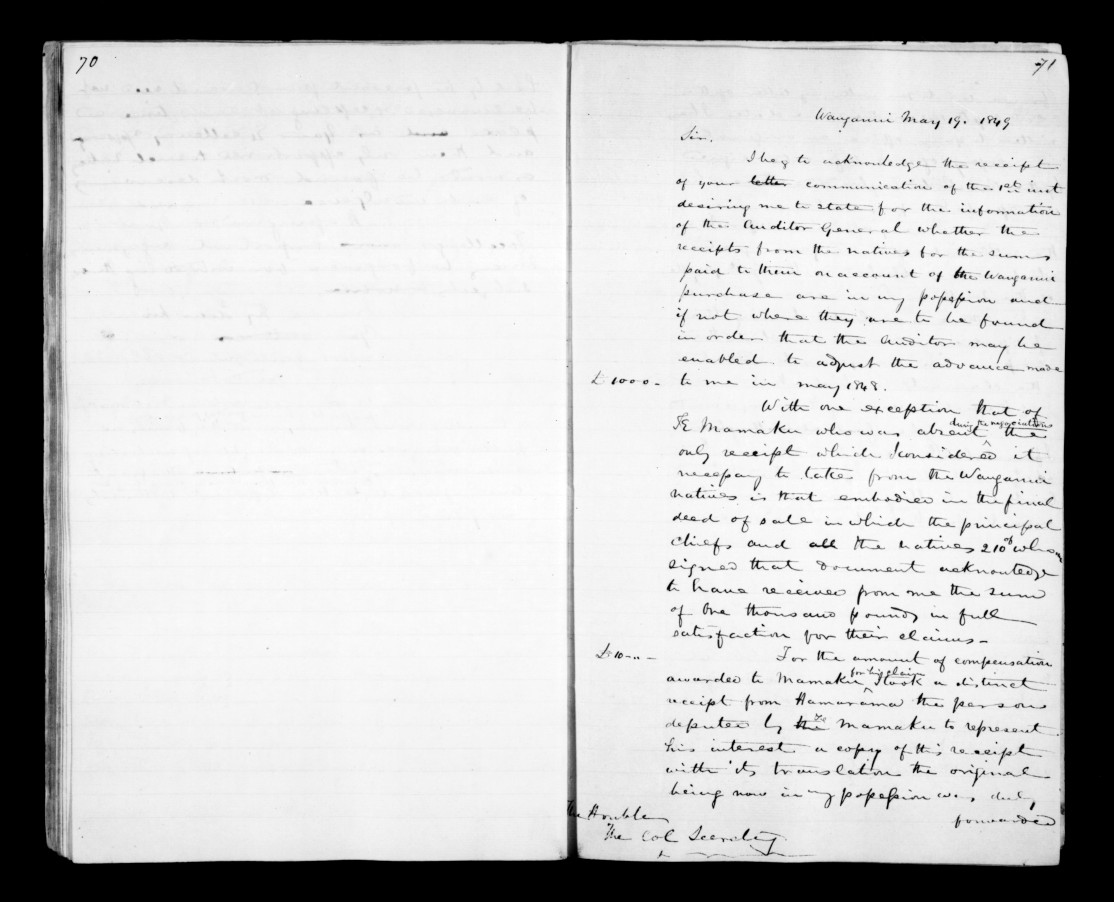 70
71
Wanganui May 19. 1849
Sir.
I beg to acknowledge the receipt
of your letter communication of the 1st inst
desiring me to state for the information
of the Auditor General whether the
receipts from the natives for the sums
paid to them on account of the Wanganui
purchase are in my possession and
if not where they are to be found
in order that the Auditor may be
enabled to adjust the advance made
£1000 - to me in may 1848.
With one exception that of
during the negociations
TE Mamaku who was absent ^ the
only receipt which I considered it
necessary to take from the Wanganui
natives is that embodied in the final
deed of sale in which the principal
chiefs and all the natives 210 of whom
signed that document acknowledge
to have received from me the sum
of One thousand pounds in full
satisfaction for their claims -
£10 - " - For the amount of compensation
for his claim
awarded to Mamaku ^ I took a distinct
receipt from Hamarama the person
deputed by the Te Mamaku to represent
his interest a copy of this receipt
with its translation the original
being now in my possession was duly
forwarded
The Honble
The Col Secretary